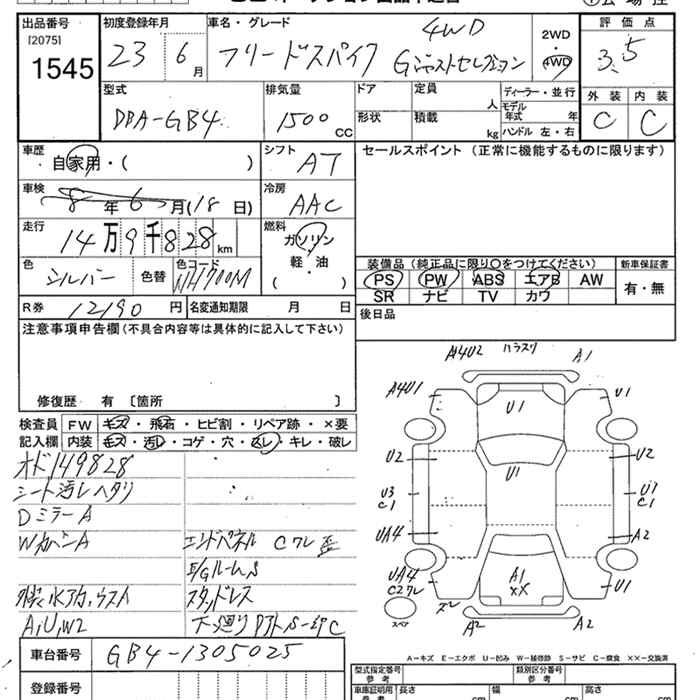 出品番号
[2075]
1545
初度登録年月
23 6月
車名・グレード
4WD
フリードスパイク Gジャストセレクション
2WD
・
4WD
評価点
3.5
外装 内装
C C
型式
DBA-GB4
排気量
1500 CC
ドア
形状
定員 人
積載 kg
ディーラー・並行
モデル
年式 年
ハンドル 左・右
車歴
自家用・( )
シフト
AT
セールスポイント (正常に機能するものに限ります)
車検
8年6月(18日)
冷房
AAC
走行
14万9千828km
燃料
ガソリン
軽・油
( )
色
シルバー
色替
色コード
NH700M
装備品 (純正品に限り○をつけてください)
新車保証書
PS PW ABS エアB AW
SR ナビ TV カワ
有・無
R券 12190円
名変通知期限 月 日
後日品
注意事項申告欄 (不具合内容等は具体的に記入して下さい)
修復歴 有 〔箇所 〕
検査員 FW キズ・飛石・ヒビ割・リペア跡・×要
記入欄 内装 キズ・汚レ・コゲ・穴・返レ・キレ・破レ
オド149828
シート汚レヘタリ
DミラーA
WカバンA
エンドパネル Cワレ歪
E/GルームS
スタッドレス
A,U,W2
下廻りPアトS-EPC
A14U2 ハラスワ A1
A4U1 U1 U1
U2 U1 U2
U3 C1 U1 C1
UA4 A2
UA4 C2ワレ A1 ×× U1
ズレ A2 A2
スペア
A-キズ E-エクボ U-凹み W-補修跡 S-サビ C-腐食 ××-交換済
車台番号 GB4-1305025
登録番号
型式指定番号 参考
類別区分番号 参考
車庫証明用 参考 長さ cm 幅 cm 高さ cm